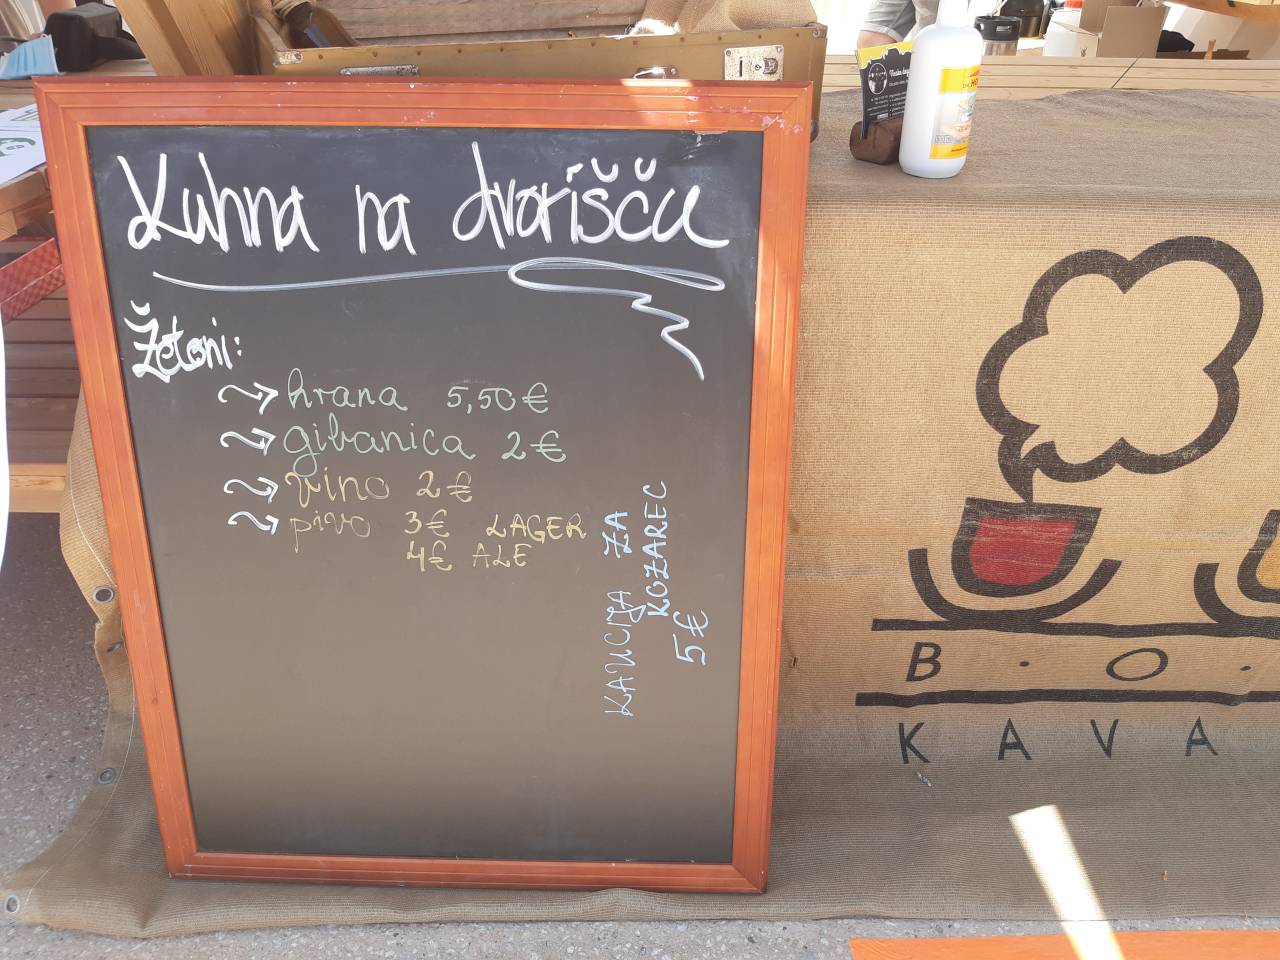 Kuhna na dvorišču
Žetoni:
hrana 5,50€
gibanica 2€
vino 2€
pivo 3€ LAGER
4€ ALE
KAUCIJA ZA
KOZAREC
5€
B · O ·
KAVA